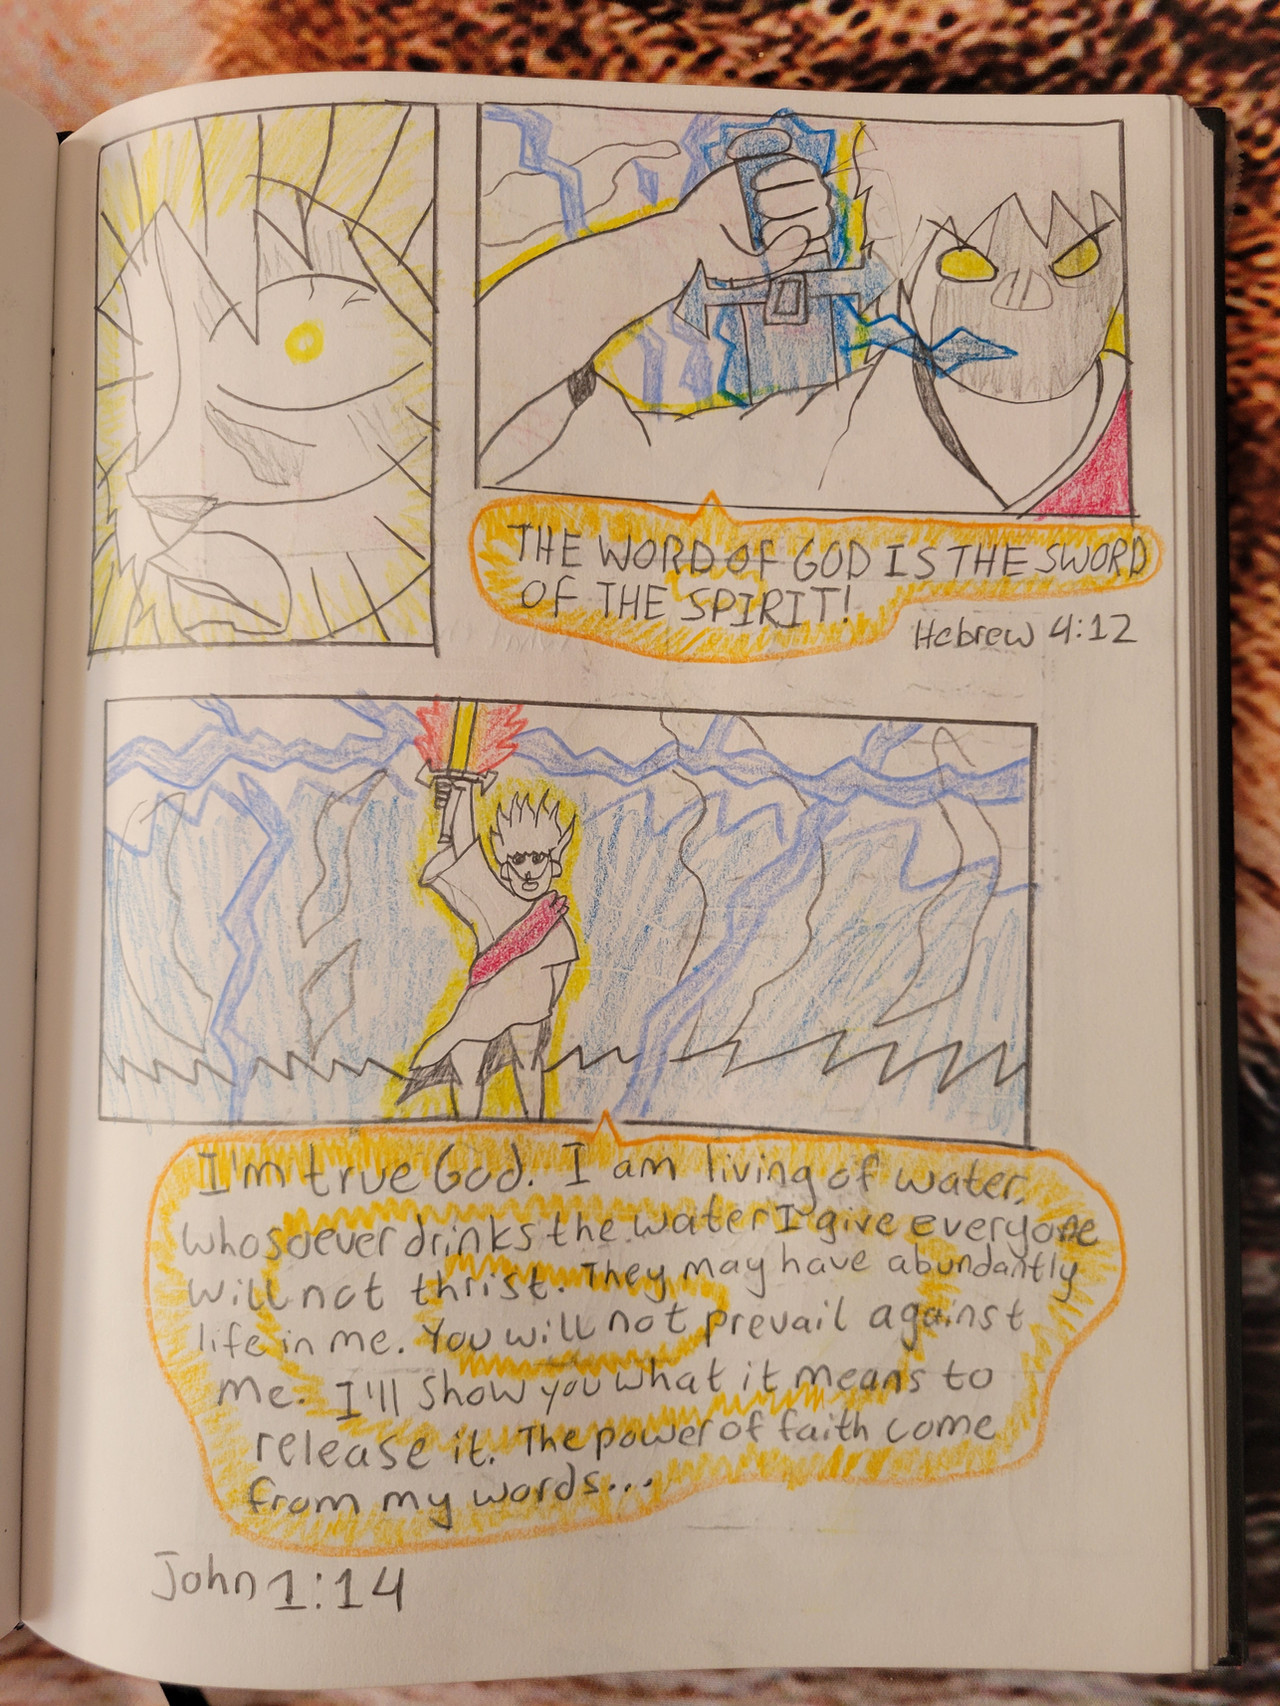 THE WORD OF GOD IS THE SWORD
OF THE SPIRIT!
Hebrew 4:12
I'm true God. I am living of water,
whosoever drinks the water I give everyone
will not thrist. They may have abundantly
life in me. You will not prevail against
me. I'll show you what it means to
release it. The power of faith come
from my words...
John 1:14